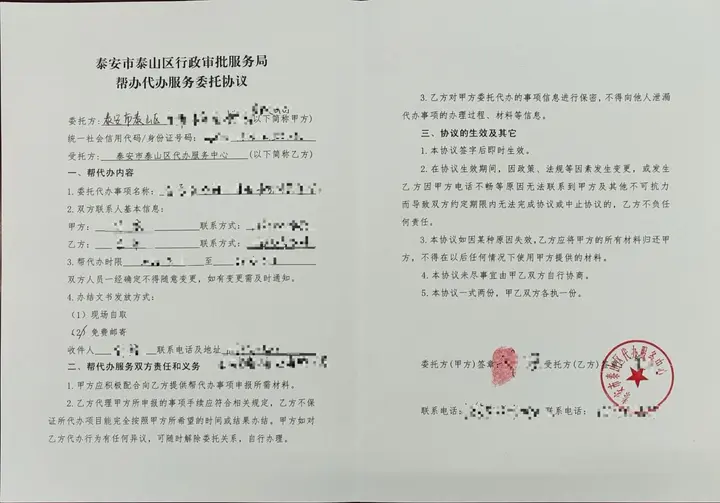 泰安市泰山区行政审批服务局
帮办代办服务委托协议
委托方:泰安市泰山区(以下简称甲方)
统一社会信用代码/身份证号码:
受托方:泰安市泰山区代办服务中心(以下简称乙方)
一、帮代办内容
1.委托代办事项名称:
2.双方联系人基本信息:
甲方: 联系方式:
乙方: 联系方式:
3.帮代办时限 至
双方人员一经确定不得随意变更,如有变更需及时通知。
4.办结文书发放方式:
(1)现场自取
(2)免费邮寄
收件人 联系电话及地址
二、帮代办服务双方责任和义务
1.甲方应积极配合向乙方提供帮代办事项申报所需材料。
2.乙方代理甲方所申报的事项手续应符合相关规定,乙方不保
证所代办项目能完全按照甲方所希望的时间或结果办结。甲方如对
乙方代办行为有任何异议,可随时解除委托关系,自行办理。
3.乙方对甲方委托代办的事项信息进行保密,不得向他人泄漏
代办事项的办理过程、材料等信息。
三、协议的生效及其它
1.本协议签字后即时生效。
2.在协议生效期间,因政策、法规等因素发生变更,或发生
乙方因甲方电话不畅等原因无法联系到甲方及其他不可抗力
而导致双方约定期限内无法完成协议或中止协议的,乙方不负任
何责任。
3.本协议如因某种原因失效,乙方应将甲方的所有材料归还甲
方,不得在以后任何情况下使用甲方提供的材料。
4.本协议未尽事宜由甲乙双方自行协商。
5.本协议一式两份,甲乙双方各执一份。
委托方(甲方)签章: 受托方(乙方)
泰安市泰山区代办服务中心
联系电话: 联系电话: